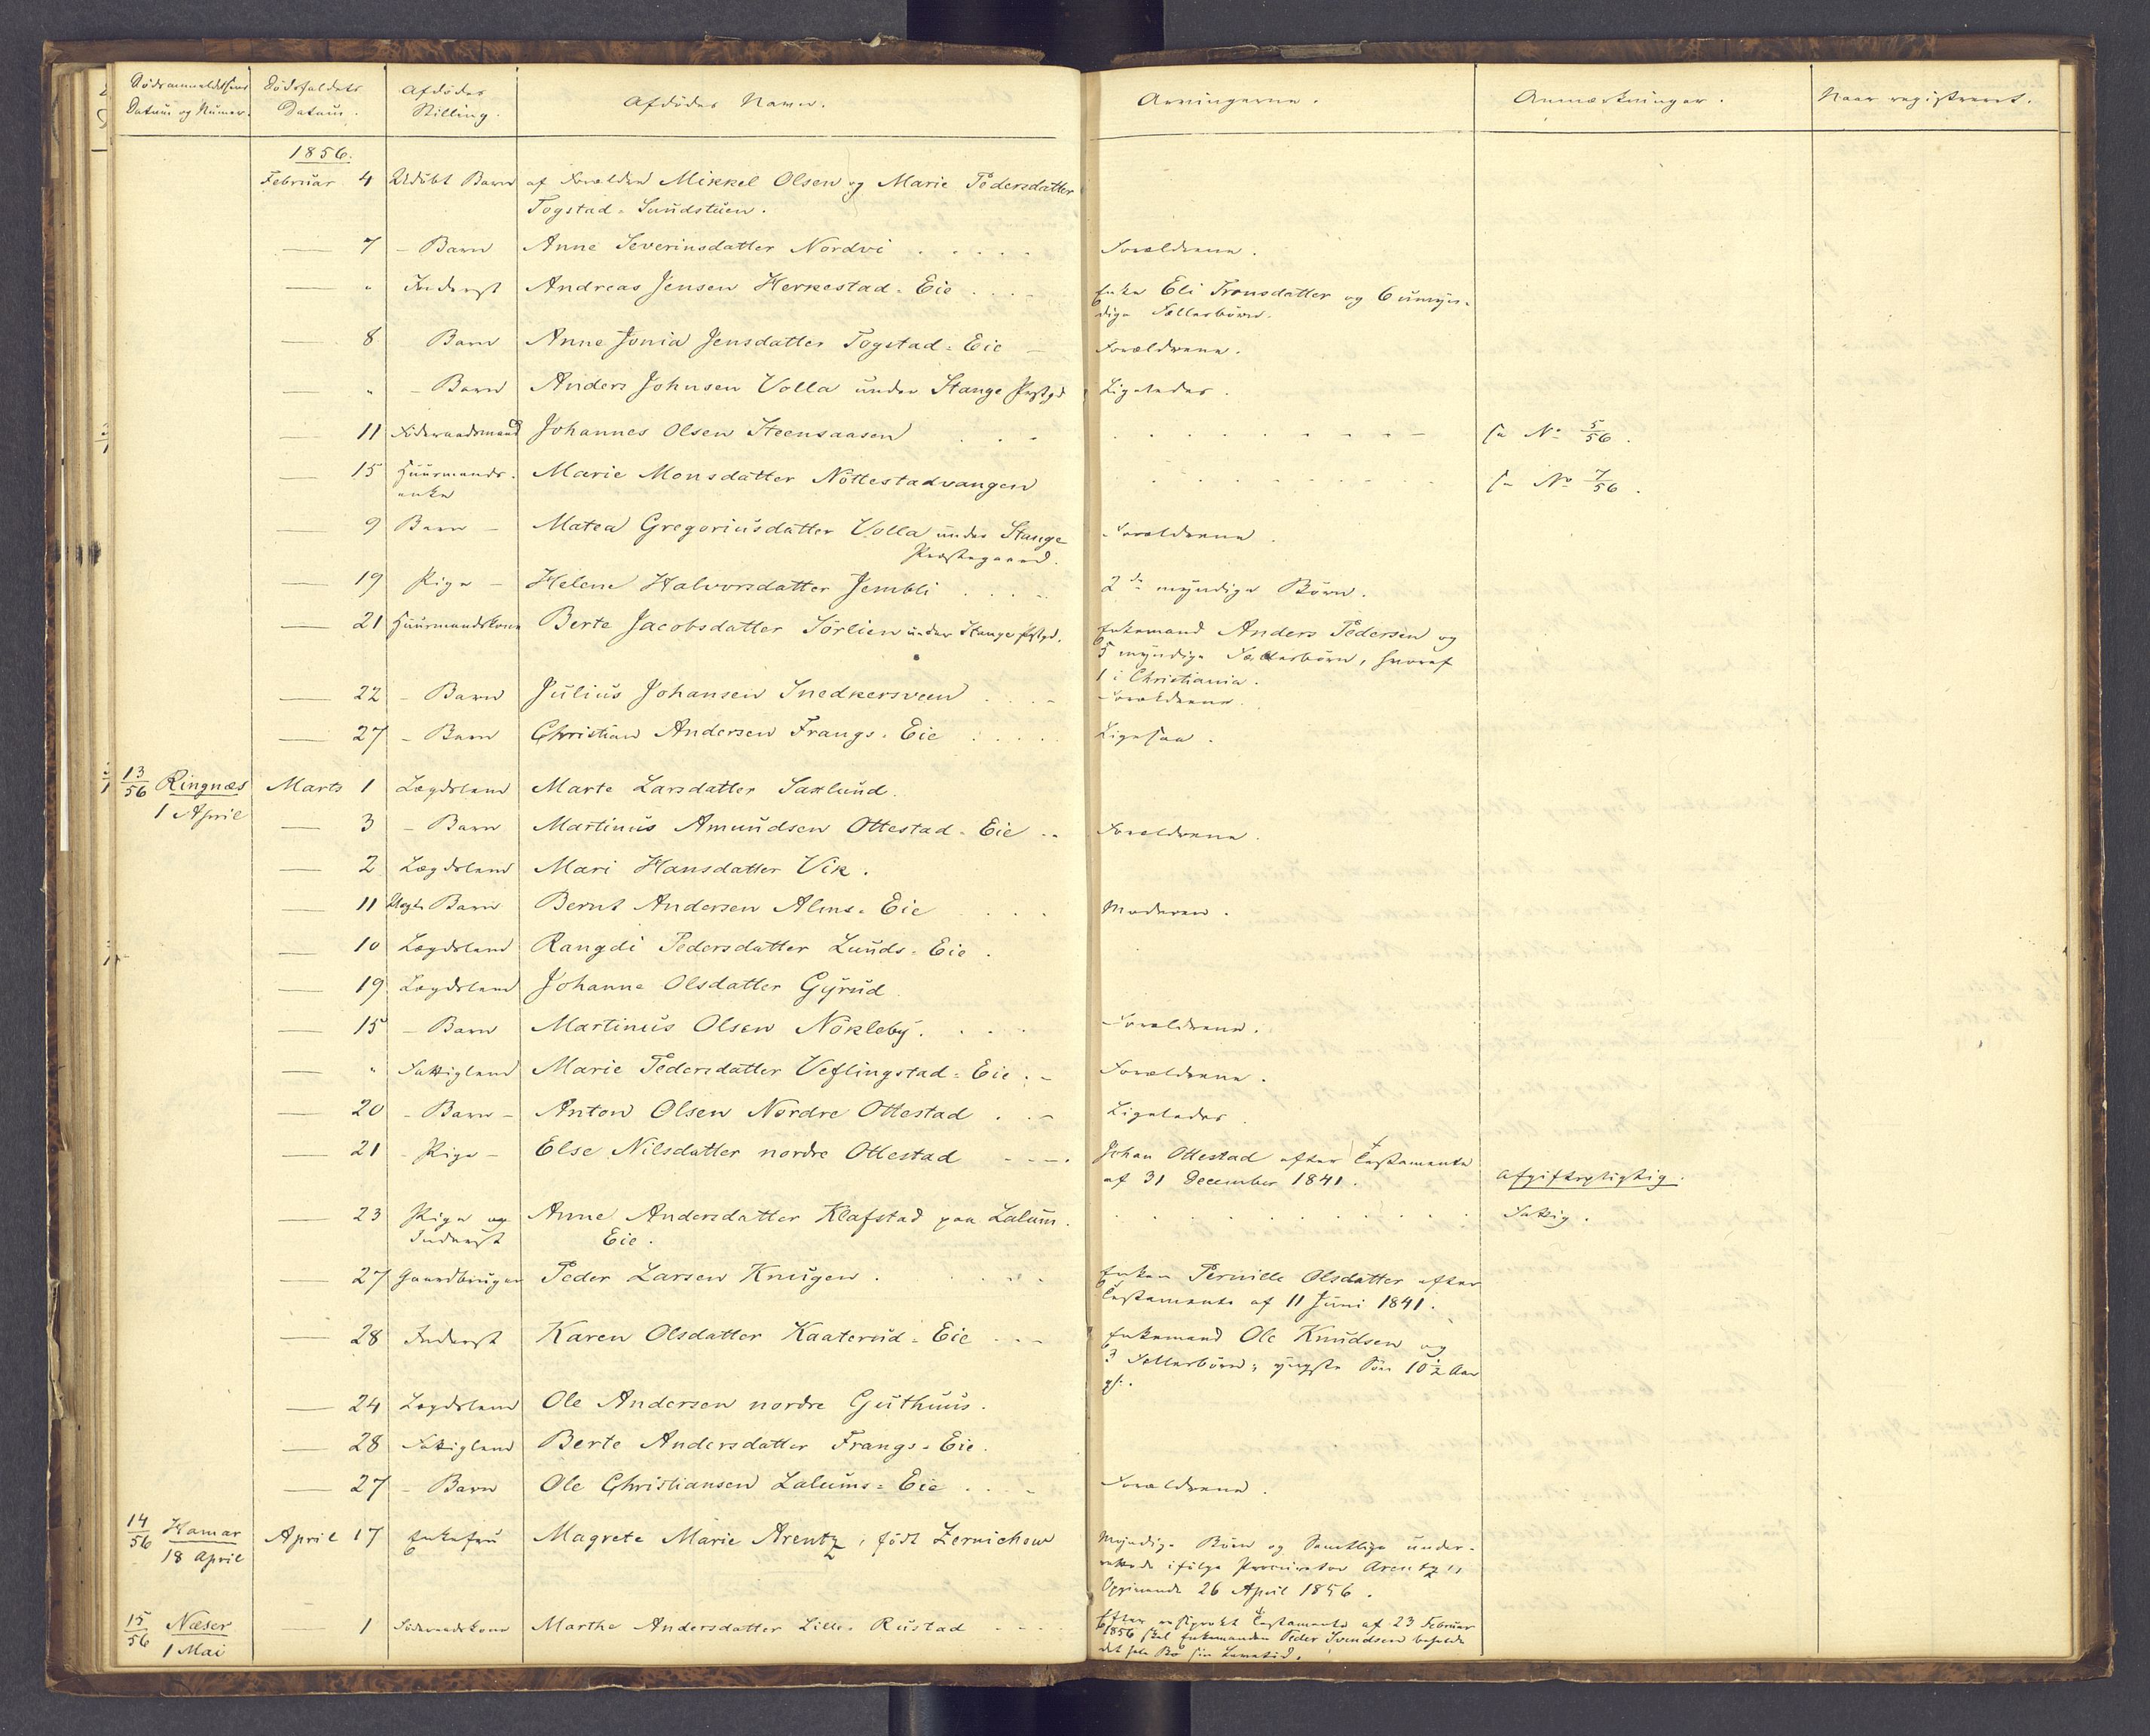 Dødsanmeldelsens Datum og Numer. Dødsfaldets Datum. Afdødes Stilling. Afdødes Navn. Arvingerne. Anmærkninger. Naar registreret.
1856.
Februar 4 Udøbt Barn af Forældre Mikkel Olsen og Marie Pedersdatter
Togstad-Sundstuen.
— 7 - Barn Anne Severinsdatter Nordvi . . . . . Forældrene.
— " Inderst Andreas Jensen Herkestad-Eie . . . Enke Eli Tronsdatter og 6 umyn-
dige Fællesbørn.
— 8 Barn Anne Jonia Jensdatter Togstad-Eie — Forældrene.
— " - Barn Anders Johnsen Volla under Stange Prstgd Ligeledes.
— 11 Føderaadsmand Johannes Olsen Steensaasen . . . se No 5/56.
— 15 Huusmands- Marie Monsdatter Nöttestadvangen se No 7/56.
enke
— 9 Barn - Matea Gregoriusdatter Volla under Stange Forældrene.
Præstegaard.
— 19 Pige - Helene Halvorsdatter Jembli . . . . 2de myndige Børn.
— 21 Huusmandskone Berte Jacobsdatter Sörlien under Stange Prstgd. Enkemand Anders Pedersen og
5 myndige Fællesbørn, hvoraf
1 i Christiania.
— 22 - Barn Julius Johansen Snedkersveen . . . Forældrene.
— 27 - Barn Christian Andersen Frangs-Eie . . . . Ligesaa.
13/56 Ringnæs Marts 1 Lægdslem Marte Larsdatter Saxlund.
1 April — 3 - Barn Martinus Amundsen Ottestad-Eie .. Forældrene.
— 2 Lægdslem Mari Hansdatter Vik.
— 11 Uægte Barn Bernt Andersen Alms-Eie . . . Moderen.
— 10 Lægdslem Rangdi Pedersdatter Lunds-Eie.
— 19 Lægdslem Johanne Olsdatter Gyrud
— 15 - Barn Martinus Olsen Nökleby. . . . Forældrene.
— " Fattiglem Marie Pedersdatter Veflingstad-Eie . - Forældrene.
— 20 - Barn - Anton Olsen Nordre Ottestad . . - Ligeledes.
— 21 - Pige - Else Nilsdatter nordre Ottestad - - — . Johan Ottestad efter Testamente
af 31 December 1841. Afgiftspligtig.
— 23 Pige og Anne Andersdatter Klafstad paa Lalum- Fattig.
Inderst Eie.
— 27 Gaardbruger Peder Larsen Knugen . . . . . Enken Pernille Olsdatter efter
Testamente af 11 Juni 1841.
— 28 Inderst Karen Olsdatter Kaaterud-Eie . . - Enkemand Ole Knudsen og
3 Fællesbørn; yngste Søn 10 1/2 Aar
gl.
— 24 Lægdslem Ole Andersen nordre Guthuus.
— 28 Fattiglem Berte Andersdatter Frangs-Eie.
— 27 - Barn Ole Christiansen Lalums-Eie . . . . Forældrene.
14/56 Hamar April 17 Enkefru Magrete Marie Arentz, født Zernichow Myndige Børn og Samtlige under-
18 April rettede ifølge Procurator Arentz's
Opgivende 26 April 1856.
15/56 Næser — 1 Føderaadskone Marthe Andersdatter Lille-Rustad . . . . Efter reciprokt Testamente af 23 Februar
1 Mai 1856 skal Enkemanden Peder Svendsen beholde
det hele Bo sin Levetid.